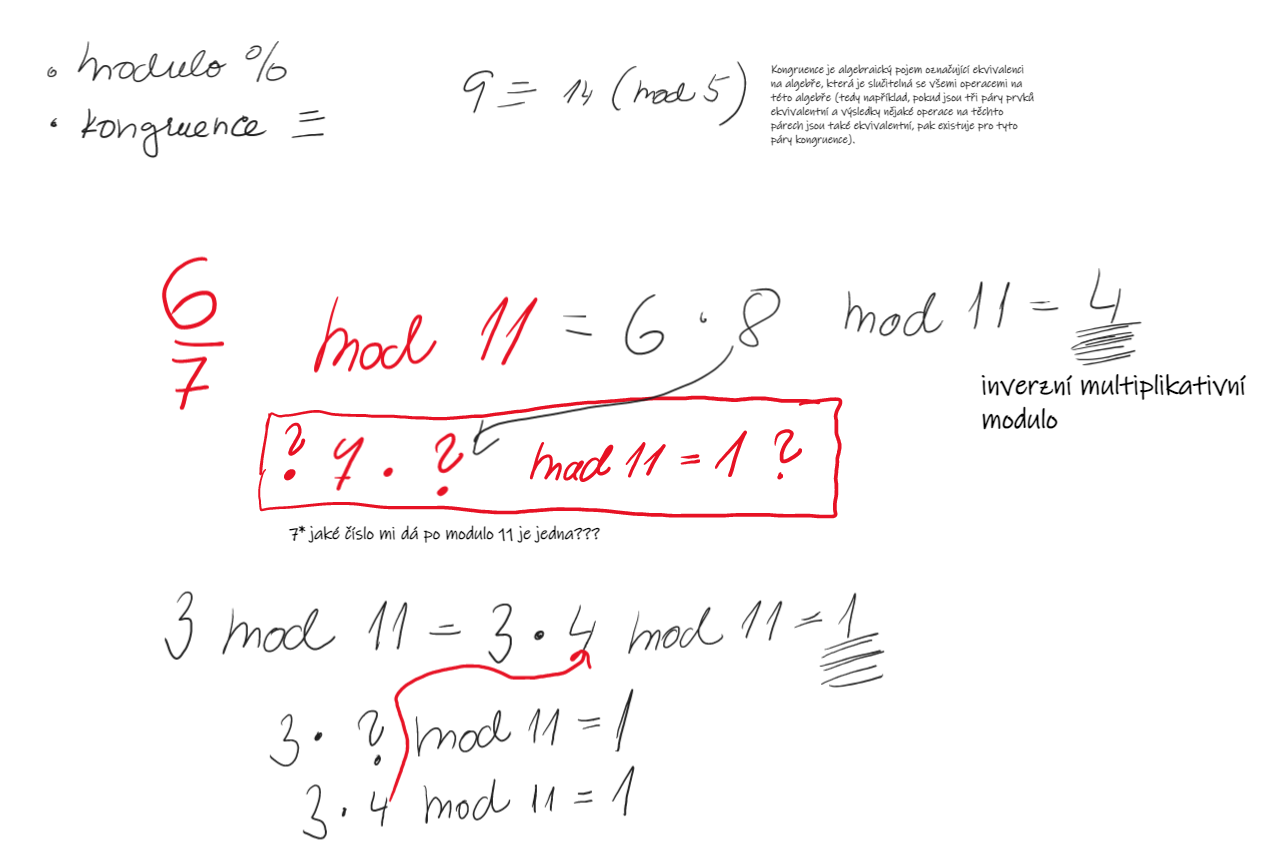 • modulo %
• kongruence ≡
9 ≡ 14 (mod 5)
Kongruence je algebraický pojem označující ekvivalenci
na algebře, která je slučitelná se všemi operacemi na
této algebře (tedy například, pokud jsou tři páry prvků
ekvivalentní a výsledky nějaké operace na těchto
párech jsou také ekvivalentní, pak existuje pro tyto
páry kongruence).
6/7 mod 11 = 6 · 8 mod 11 = 4
inverzní multiplikativní
modulo
? 7 · ? mod 11 = 1 ?
7* jaké číslo mi dá po modulo 11 je jedna???
3 mod 11 = 3 · 4 mod 11 = 1
3 · ? mod 11 = 1
3 · 4 mod 11 = 1